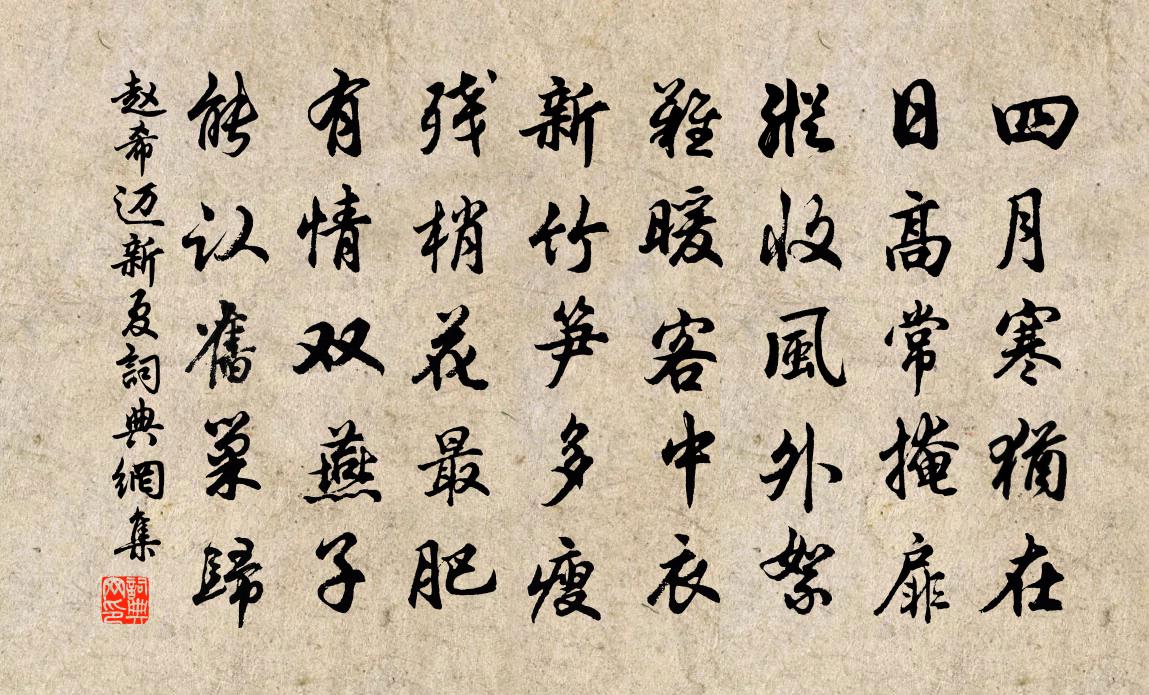 四月寒猶在
日高常掩扉
縱收風外絮
難暖客中衣
新竹笋多瘦
残梢花最肥
有情双燕子
能认舊巢歸
赵希迈新夏詞典網集
詞典网印